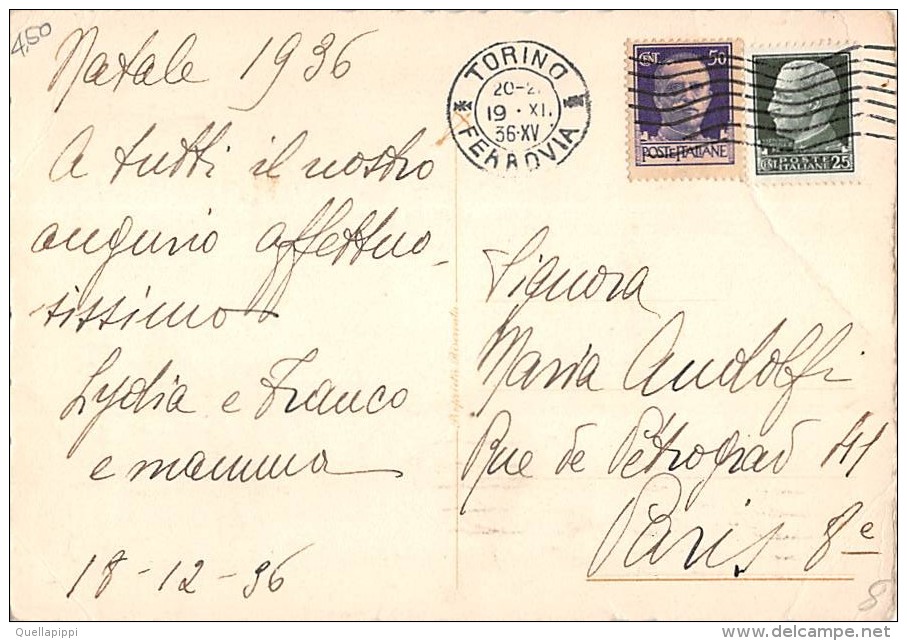 4,50
Natale 1936
A tutti il nostro
augurio affettuo-
sissimo
Lydia e Franco
e mamma
18-12-36
TORINO
20-2
19 · XI.
36·XV
FERROVIA
CENT. 50
POSTE ITALIANE
CENT POSTE ITALIANE 25
Signora
Maria Andolfi
Rue de Pétrograd 41
Paris 8e
8
Quellapippi
delcampe.net